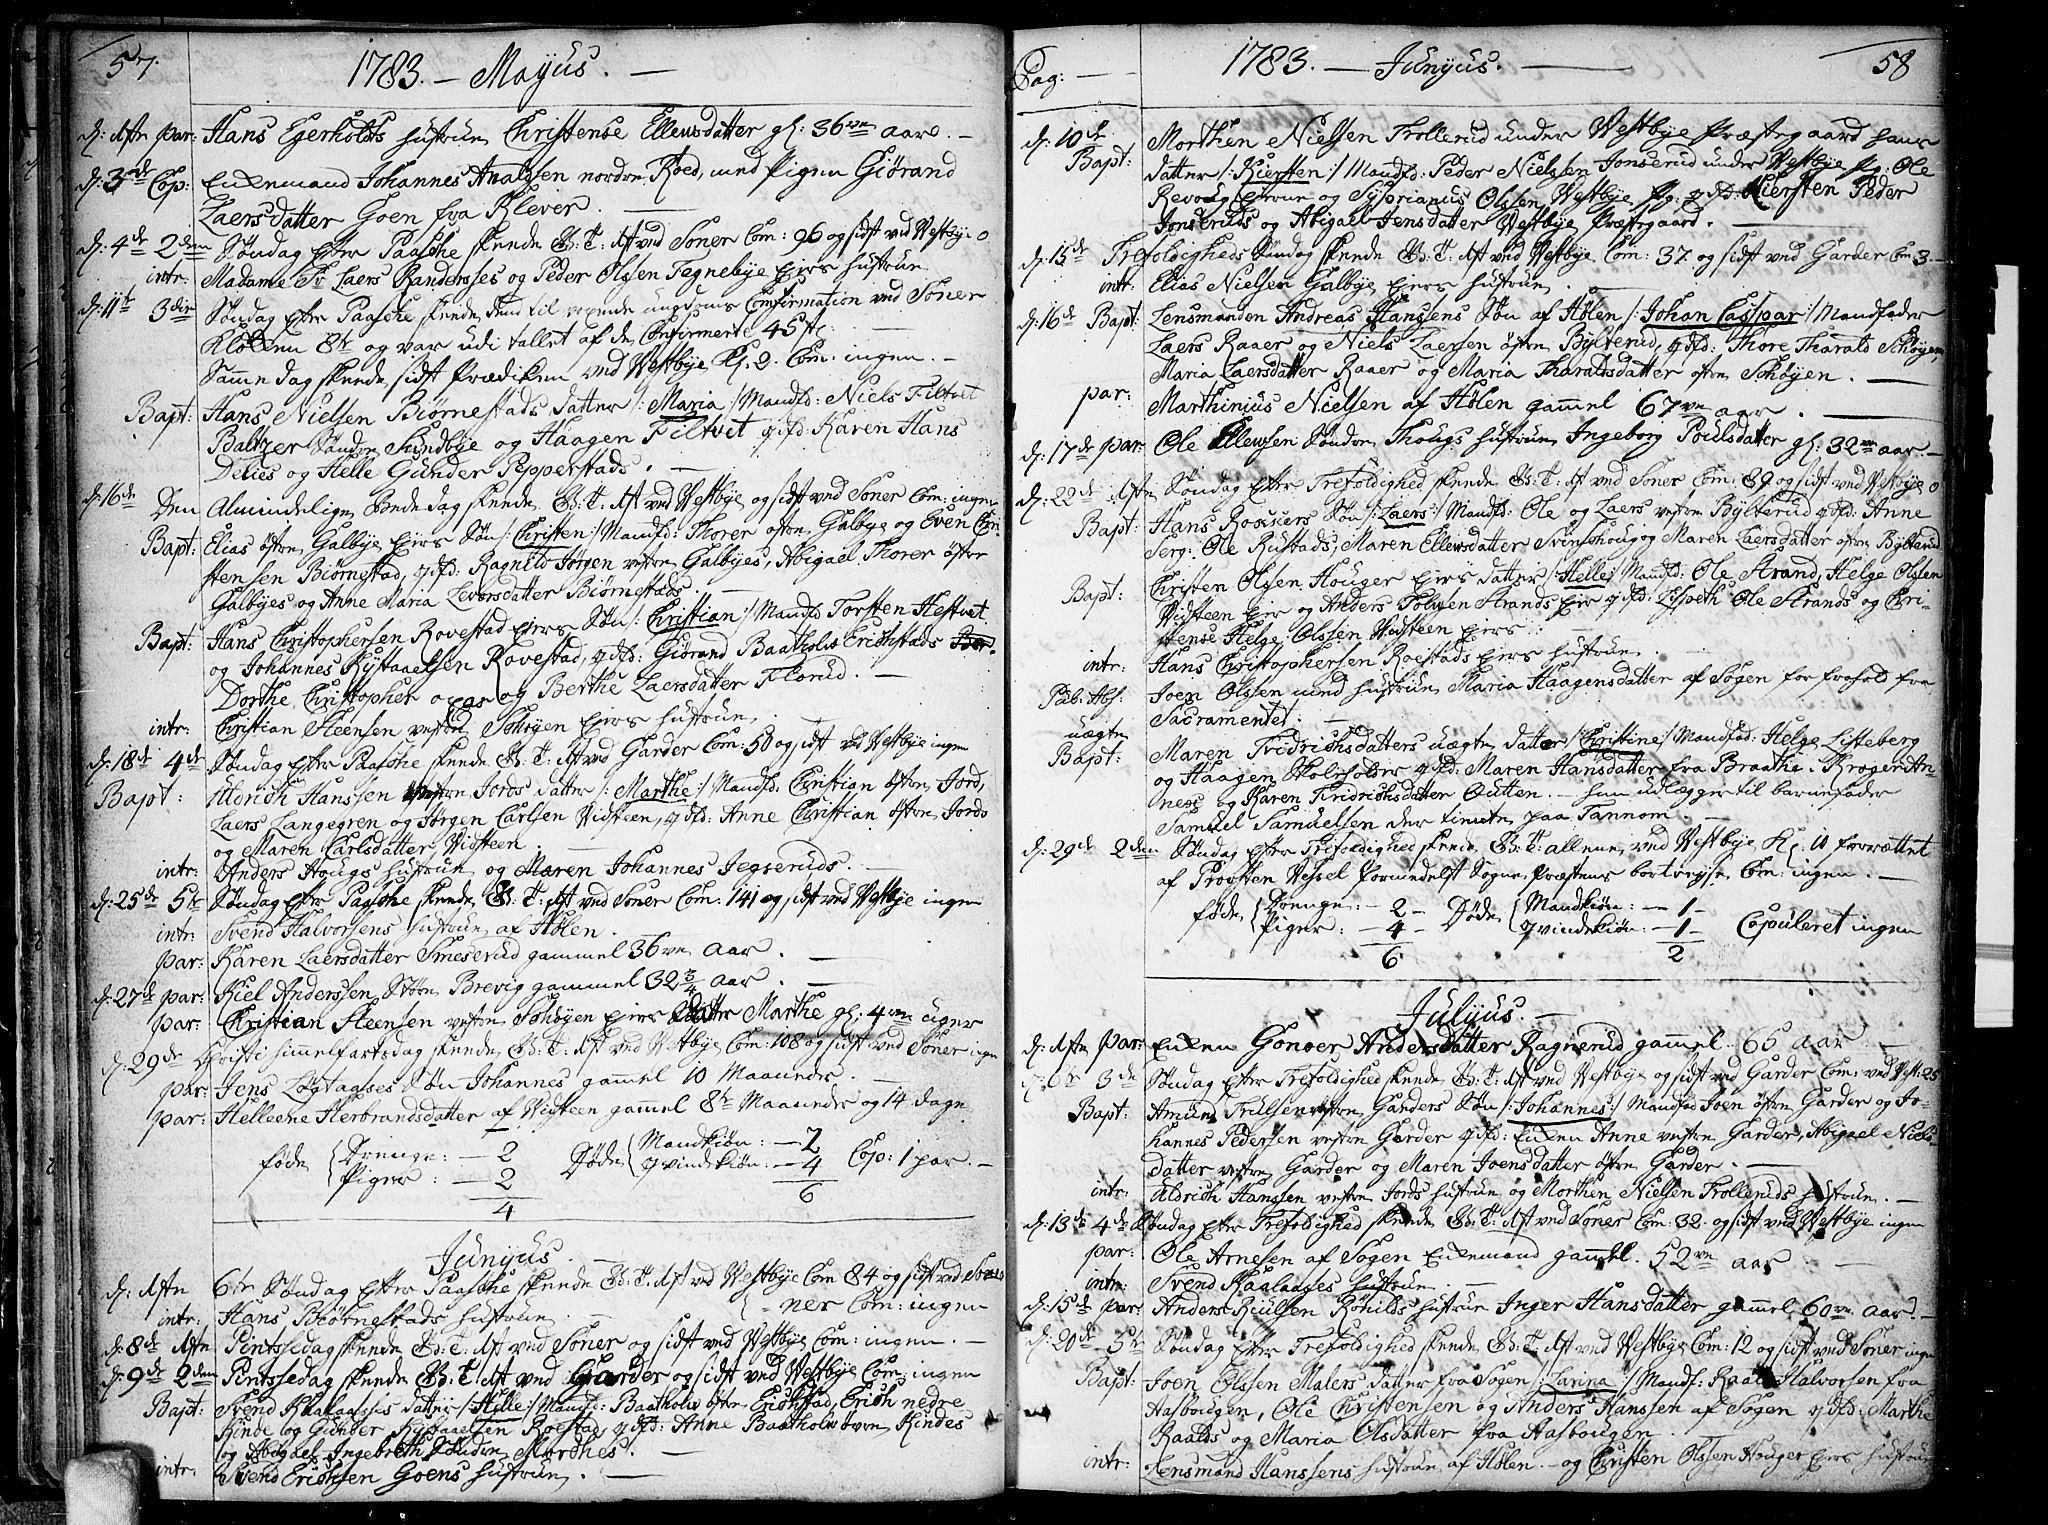 57.
1783. — Mayus. —
d: 1ste par: Hans Egerholts hustrue Christense Ellensdatter gl: 36 aar. —
d: 3de Cop: Enkemand Johannes Analdsen nordre Roed, med Pigen Giørand
Laersdatter Goen fra Klever. —
d: 4de 2den Søndag efter Paasche skeede G: T: Ast ved Soner Com: 96 og sidst ved Westbye 0
intr: Madame Laers Randersses og Peder Olssen Tegnebye Eiers hustrue
d: 11te 3die Søndag efter Paasche skeede den til voxende ungdoms Confirmation ved Soner
Klokken 8te og var udi tallet af de Confirmerte 45
Samme dag skeede sidst Prædiken ved Westbye Kl. 2. Com: ingen. —
Bapt: Hans Nielsen Biørnestads datter /: Maria :/ Mandf: Niels Filtvet
Baltzer Søndre Sundbye og Haagen Filtvet qvdf: Karen Hans
Delies og Helle Gunder Pepperstads. —
d: 16de Den Almindelige Bededag skeede G: T: Ast ved Westbye og sidst ved Soner Com: ingen
Bapt: Elias østre Galbye Eiers Søn /: Christen :/ Mandf: Thorer østre Galbye og Even Chri-
stensen Biørnestad, qvdf: Ragnild Jørgen vestre Galbyes, Abigael Thorer østre
Galbyes og Anne Maria Levorsdatter Biørnestads. —
Bapt: Hans Christophersen Rovestad Eiers Søn /: Christian :/ Mandfd Torsten Hestvet
og Johannes Rystaaelsen Rovestad, qvdf: Giørand Baatholis Erichstads
Dorthe Christopher og Berthe Laersdatter Florud. —
intr: Christian Steensen vestre Schøyen Eiers hustrue. —
d: 18de 4de Søndag efter Paasche skeede G: T: Ast ved Garder Com: 50 og sidst ved Westbye ingen
Bapt: Uldrich Hanssen vestre Jords datter /: Marthe :/ Mandf: Christian østre Jord,
Laers Langegren og Jørgen Carlsen Vidsteen, qvdf: Anne Christian østre Jords
og Maren Carlsdatter Vidsteen. —
intr: Anders Hougs hustrue og Maren Johannes Jegseruds. —
d: 25de 5te Søndag efter Paasche skeede G: T: Ast ved Soner Com: 141 og sidst ved Westbye ingen
intr: Svend Halvorsens hustrue af Hølen.
par: Karen Laersdatter Smeserud gammel 36 aar. —
d: 27de par: Kiel Anderssen Store Brevig gammel 32 3/4 aar. —
par: Christian Steensen vestre Schøyen Eiers datter Marthe gl: 4 uger
d: 29de Christi himmelfartsdag skeede G: T: Ast ved Westbye Com: 108 og sidst ved Soner ingen
par: Jens Løgtaases Søn Johannes gammel 10 Maaneder. —
par: Helleene Herbrandsdatter af Vidsteen gammel 8te Maaneder og 14 dage
føde { Drenge: — 2
Piger: — 2
4
Døde { Mandkiøn: — 2
qvindekiøn: — 4
6
Cop: 1 par. —
Junyus. —
d: 1ste 6te Søndag efter Paasche skeede G: T: Ast ved Westbye Com 84 og sidst ved So-
ner Com: ingen
intr: Hans Biørnestads hustrue. —
d: 8de 1ste Pintsedag skeede G: T: Ast ved Soner og sidst ved Westbye Com: ingen. —
d: 9de 2den Pintsedag skeede G: T: Ast ved Garder og sidst ved Westbye Com: ingen
Bapt: Svend Kaalaases datter /: Helle :/ Mandf: Baatholv østre Erichstad, Erich nedre
Kinde og Gunder Rystaaelsen Roestad qvdf: Anne Baatholv øvre Kindes
og Abigael Ingebreth Søndre Mordhes. —
intr: Svend Erichsen Goens hustrue. —
Pag: —
1783. — Junyus. —
58
d: 10de Bapt: Morthen Nielsen Trollerud under Westbye Præstegaard hans
datter /: Kiersten :/ Mandfd: Peder Nielsen Jonserud under Westbye pg: Ole
Revoug og Syprianus Olssen Westbye pg. qvdf: Kiersten Peder
Jonseruds og Abigael Jensdatter Westbye Præstegaard. —
d: 15de Trefoldigheds Søndag skeede G: T: Ast ved Westbye Com: 37 og sidst ved Garder Com 3. —
intr: Elias Nielsen Galbye Eiers hustrue. —
d: 16de Bapt: Lensmanden Andreas Hanssens Søn af Hølen /: Johan Casspar :/ Mandfader
Laers Raaer og Niels Laersen østre Bylterud, qvdf: Thore Tharald Schøyen,
Maria Laersdatter Raaer og Maria Tharaldsdatter østre Schøyen. —
par: Marthinius Nielsen af Hølen gammel 67 aar. —
d: 17de par: Ole Ellevsen Søndre Thougs hustrue Ingeborg Poulsdatter gl: 32 aar. —
d: 22de 1ste Søndag efter Trefoldighed skeede G: T: Ast ved Soner Com: 89 og sidst ved Westbye 0
Bapt: Hans Roosers Søn /: Laers :/ Mandfd: Ole og Laers vestre Bylterud qvdf: Anne
Serg: Ole Rustads, Maren Ellevsdatter Svinshoug og Maren Laersdatter østre Bylterud
Bapt: Christen Olssen Houger Eiers datter /: Helle :/ Mandfd: Ole Strand, Helge Olssen
Vidsteen Eier og Anders Tolvsen Strands Eier qvdf: Lisbeth Ole Strands og Chri-
stense Helge Olssen Vidsteen Eiers. —
intr: Hans Christophersen Roestads Eiers hustrue. —
Pub: Abs: Joen Olssen med hustrue Maria Haagensdatter af Sogen for frahold fra
Sacramentet. —
uægte Bapt: Maren Fridrichsdatters uægte datter /: Christine :/ Mandfad: Helge Listeberg
og Haagen Skolholder qvdf: Maren Hansdatter fra Braathe. Kroger An-
og Karen Fridrichsdatter Qutten. — han udlegges til barnefader
Samuel Samuelsen der tiente paa Tannom. —
d: 29de 2den Søndag efter Trefoldighed skeede G: T: allene ved Westbye Kl. 10 forrættet
af Provsten Vessel formedelst Sogne Præstens bortreyse Com: ingen. —
føde { Drenge: — 2 —
Piger: — 4 —
6
Døde { Mandkiøn: — 1 —
qvindekiøn: — 1 —
2
Copuleret ingen
Julyus. —
d: 1ste par: Enken Gonoer Andersdatter Ragnerud gammel 65 aar. —
d: 6te 3de Søndag efter Trefoldighed skeede G: T: Ast ved Westbye og sidst ved Garder Com: ved West: 25
Bapt: Amund Trulsen vestre Garders Søn /: Johannes :/ Mandfad Joen østre Garder og Jo-
hannes Pedersen vestre Garder qvdf: Enken Anne vestre Garder, Abigael Niels-
datter vestre Garder og Maren Joensdatter østre Garder. —
intr: Uldrich Hanssen vestre Jords hustrue og Morthen Nielsen Trolleruds hustrue. —
d: 13de 4de Søndag efter Trefoldighed skeede G: T: Ast ved Soner Com: 32. og sidst ved Westbye ingen
par: Ole Arnesen af Sogen Enkemand gammel 52 aar —
intr: Svend Kaalaases hustrue. —
d: 15de par: Anders Kiulsen Rønilds hustrue Inger Hansdatter gammel 60 aar. —
d: 20de 5te Søndag efter Trefoldighed skeede G: T: Ast ved Westbye Com: 12 og sidst ved Soner ingen
Bapt: Joen Olssen Malers datter fra Sogen /: Sarina :/ Mandf: Raald Halvorsen fra
Hasbougen, Ole Christensen og Anders Hanssen af Sogen qvdf: Marthe
Raalds og Maria Olsdatter fra Hasbougen. —
intr: Lensmand Hanssens hustrue af Hølen. — og Christen Olssen Houger Eiers hustrue